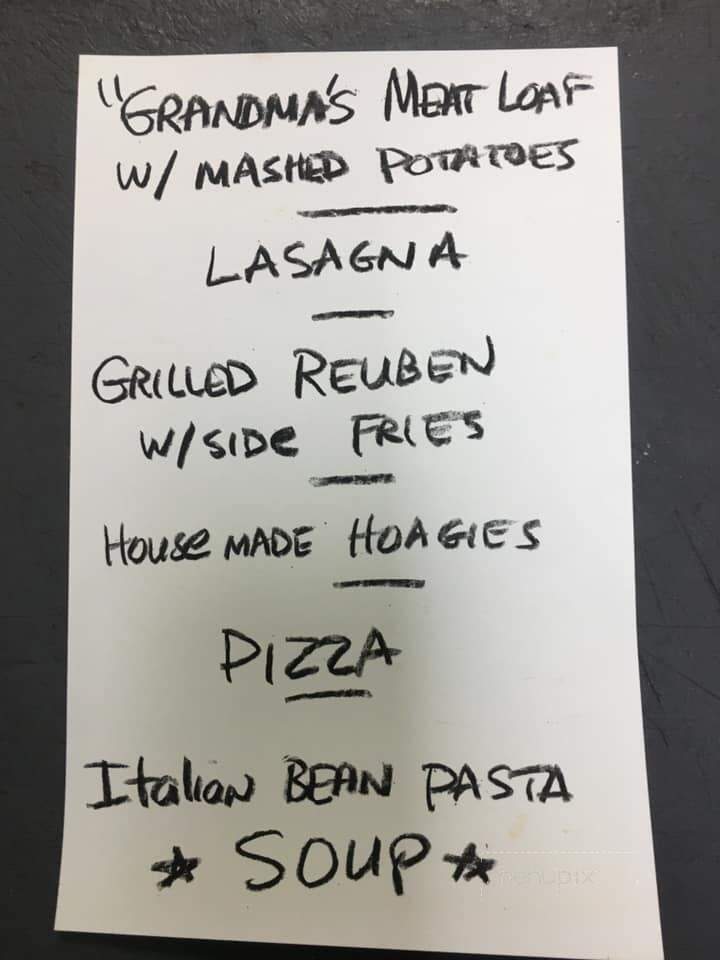 "GRANDMA'S MEAT LOAF
W/ MASHED POTATOES
LASAGNA
GRILLED REUBEN
W/SIDE FRIES
HOUSE MADE HOAGIES
PIZZA
Italian BEAN PASTA
★ SOUP ★
menupix